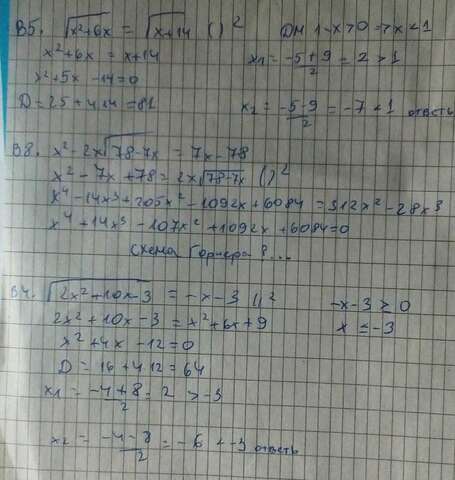 В5. √(x²+6x) = √(x+14) ( )² DM 1-x>0 => x<1
x²+6x = x+14 x₁ = (-5+9)/2 = 2 > 1
x²+5x-14=0
D=25+4·14=81 x₂ = (-5-9)/2 = -7 < 1 ответь
В8. x²-2x√(78-7x) = 7x-78
x²-7x+78=2x√(78-7x) ( )²
x⁴-14x³+205x²-1092x+6084=312x²-28x³
x⁴+14x³-107x²+1092x+6084=0
схема Горнера ...
В4. √(2x²+10x-3) = -x-3 ( )² -x-3 ≥ 0
2x²+10x-3 = x²+6x+9 x ≤ -3
x²+4x-12=0
D=16+4·12=64
x₁ = (-4+8)/2 = 2 > -3
x₂ = (-4-8)/2 = -6 < -3 ответь